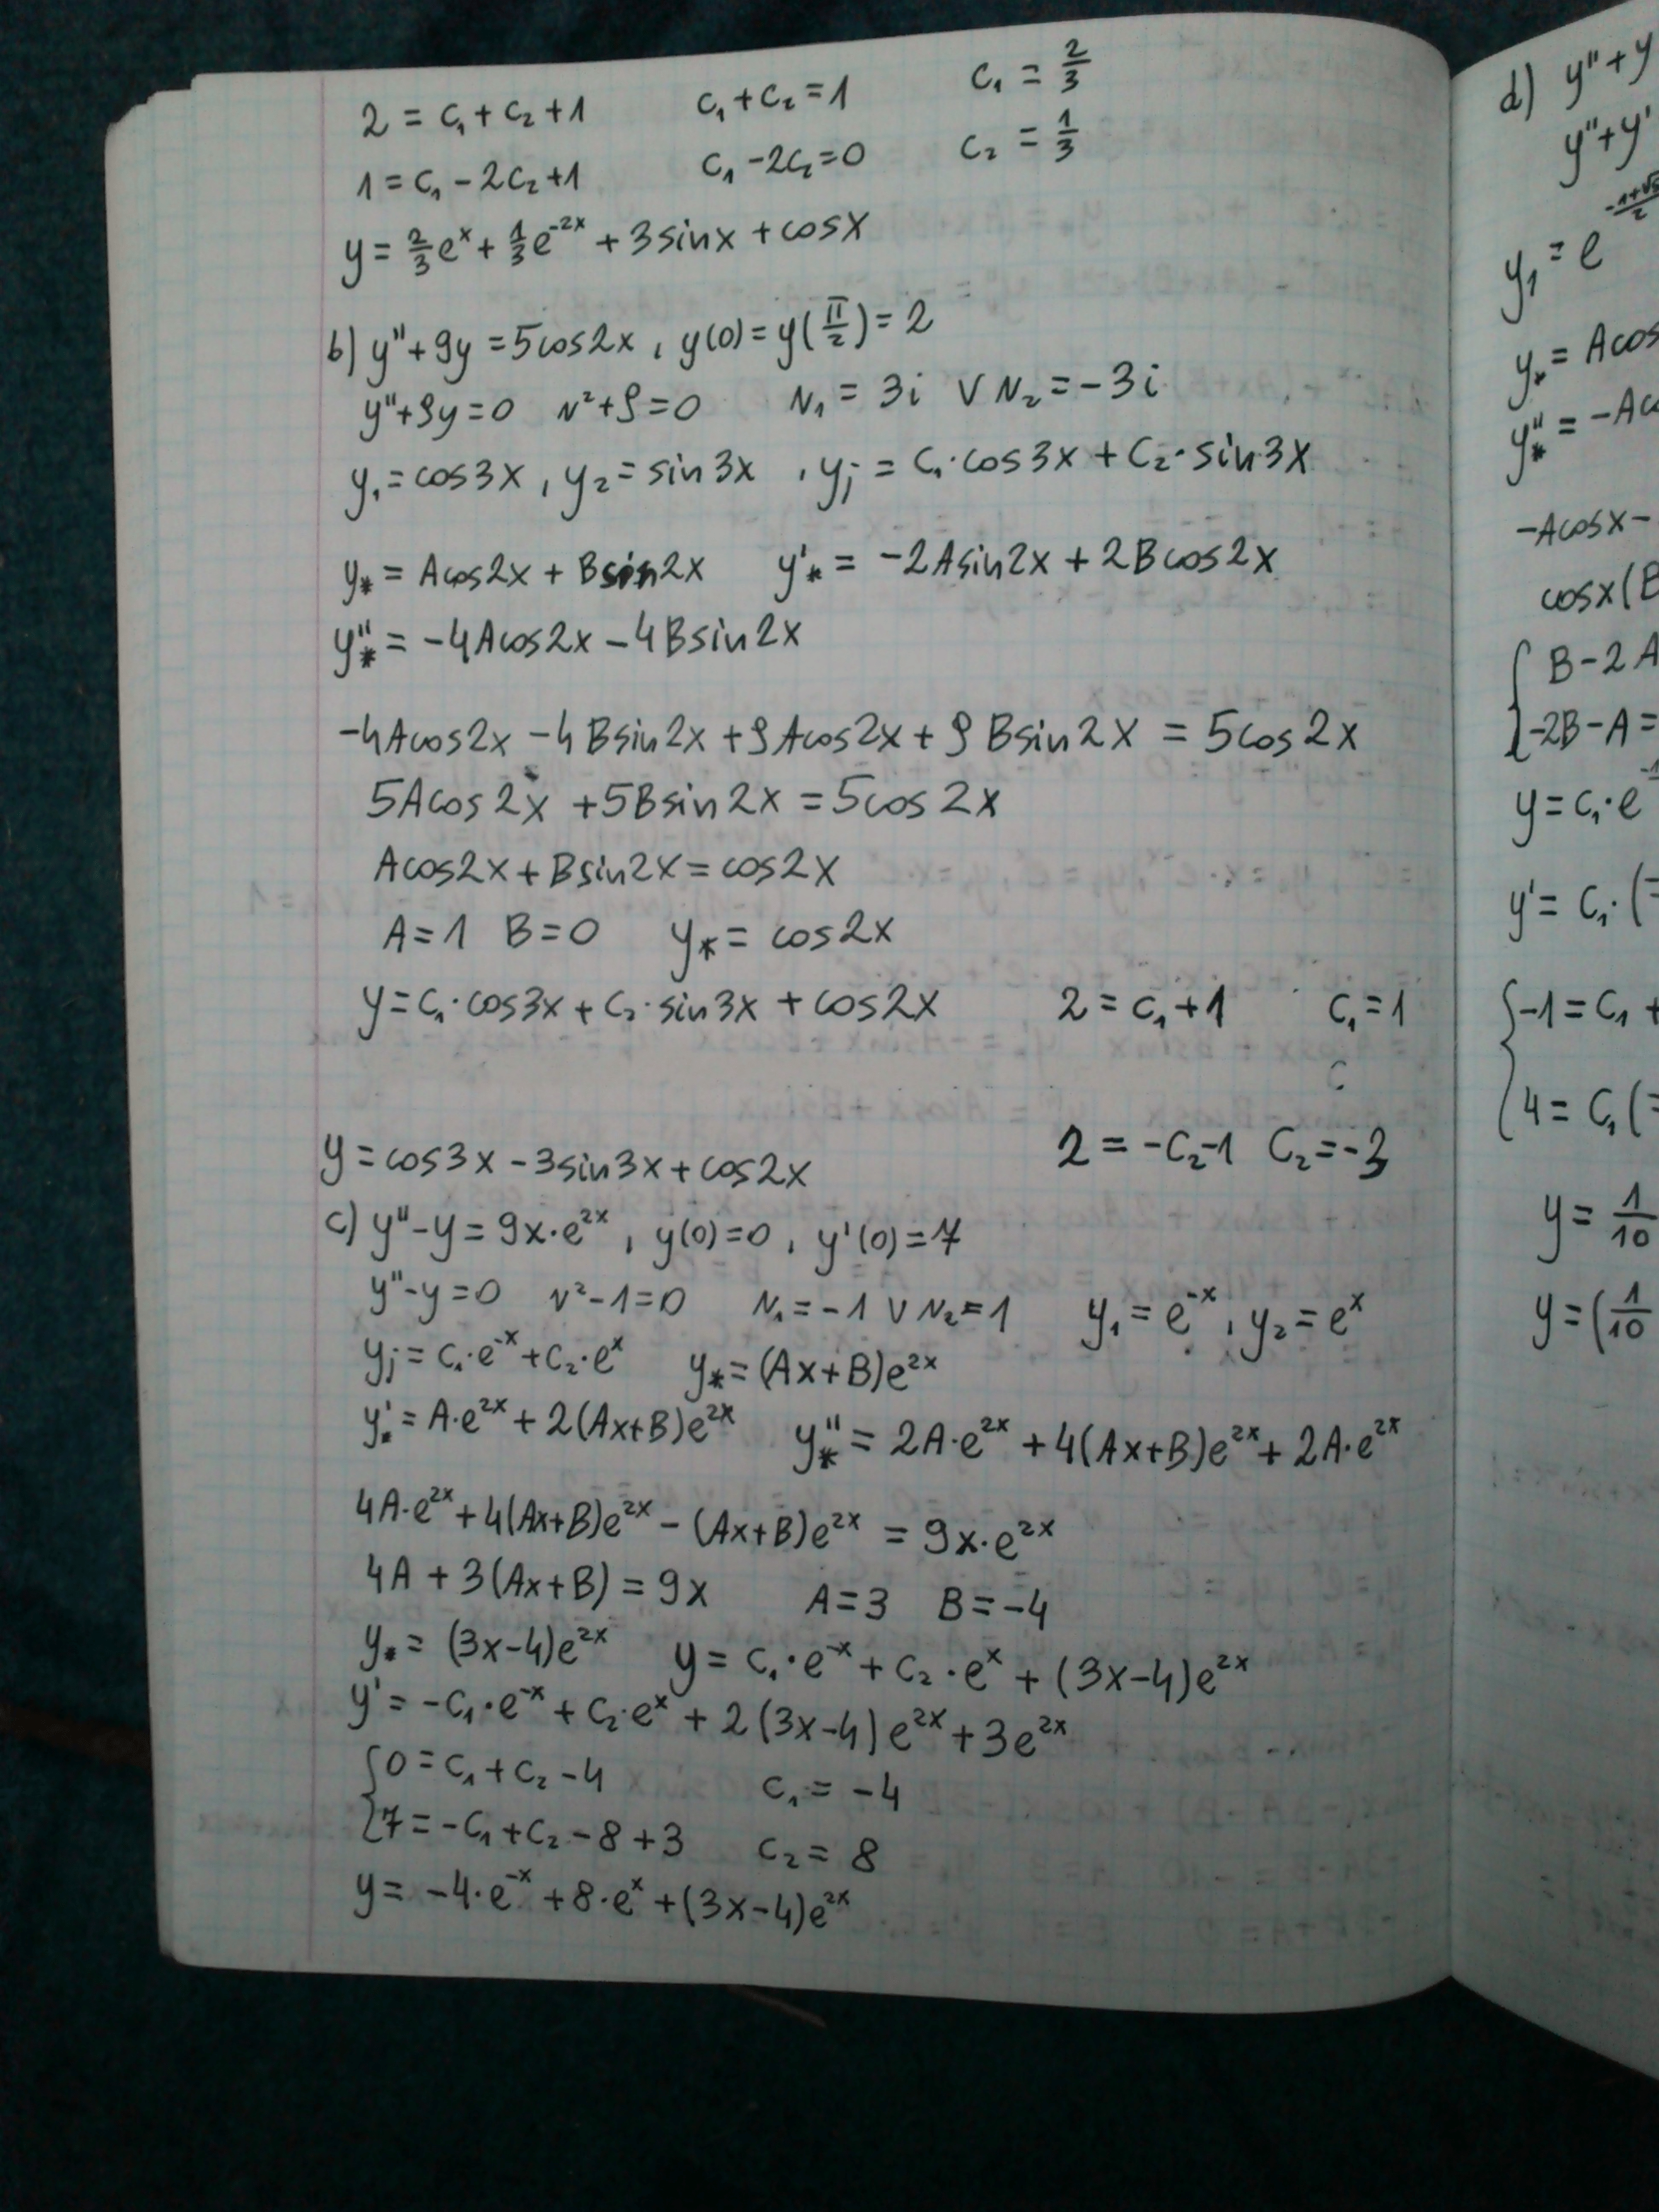 2 = c₁ + c₂ + 1    c₁ + c₂ = 1    c₁ = 2/3
1 = c₁ - 2c₂ + 1    c₁ - 2c₂ = 0    c₂ = 1/3
y = 2/3 eˣ + 1/3 e⁻²ˣ + 3sinx + cosx
b) y'' + 9y = 5cos2x , y(0) = y(π/2) = 2
y'' + 9y = 0    r² + 9 = 0    r₁ = 3i ∨ r₂ = -3i
y₁ = cos3x , y₂ = sin3x , yⱼ = c₁·cos3x + c₂·sin3x
y* = Acos2x + Bsin2x    y'* = -2Asin2x + 2Bcos2x
y''* = -4Acos2x - 4Bsin2x
-4Acos2x - 4Bsin2x + 9Acos2x + 9Bsin2x = 5cos2x
5Acos2x + 5Bsin2x = 5cos2x
Acos2x + Bsin2x = cos2x
A = 1    B = 0    y* = cos2x
y = c₁·cos3x + c₂·sin3x + cos2x    2 = c₁ + 1    c₁ = 1
c
2 = -c₂ - 1    c₂ = -3
y = cos3x - 3sin3x + cos2x
c) y'' - y = 9x·e²ˣ , y(0) = 0 , y'(0) = 7
y'' - y = 0    r² - 1 = 0    r₁ = -1 ∨ r₂ = 1    y₁ = e⁻ˣ , y₂ = eˣ
yⱼ = c₁·e⁻ˣ + c₂·eˣ    y* = (Ax+B)e²ˣ
y*' = A·e²ˣ + 2(Ax+B)e²ˣ    y''* = 2A·e²ˣ + 4(Ax+B)e²ˣ + 2A·e²ˣ
4A·e²ˣ + 4(Ax+B)e²ˣ - (Ax+B)e²ˣ = 9x·e²ˣ
4A + 3(Ax+B) = 9x    A = 3    B = -4
y* = (3x-4)e²ˣ    y = c₁·e⁻ˣ + c₂·eˣ + (3x-4)e²ˣ
y' = -c₁·e⁻ˣ + c₂·eˣ + 2(3x-4)e²ˣ + 3e²ˣ
{0 = c₁ + c₂ - 4    c₁ = -4
{7 = -c₁ + c₂ - 8 + 3    c₂ = 8
y = -4·e⁻ˣ + 8·eˣ + (3x-4)e²ˣ
d) y'' + y
y'' + y'
y₁ = e
y* = Acos
y''* = -Aco
-Acosx -
cosx(B
{B - 2A
{-2B - A =
y = c₁·e
y' = c₁·(
{-1 = c₁ +
{4 = c₁(
y = 1/10
y = (1/10